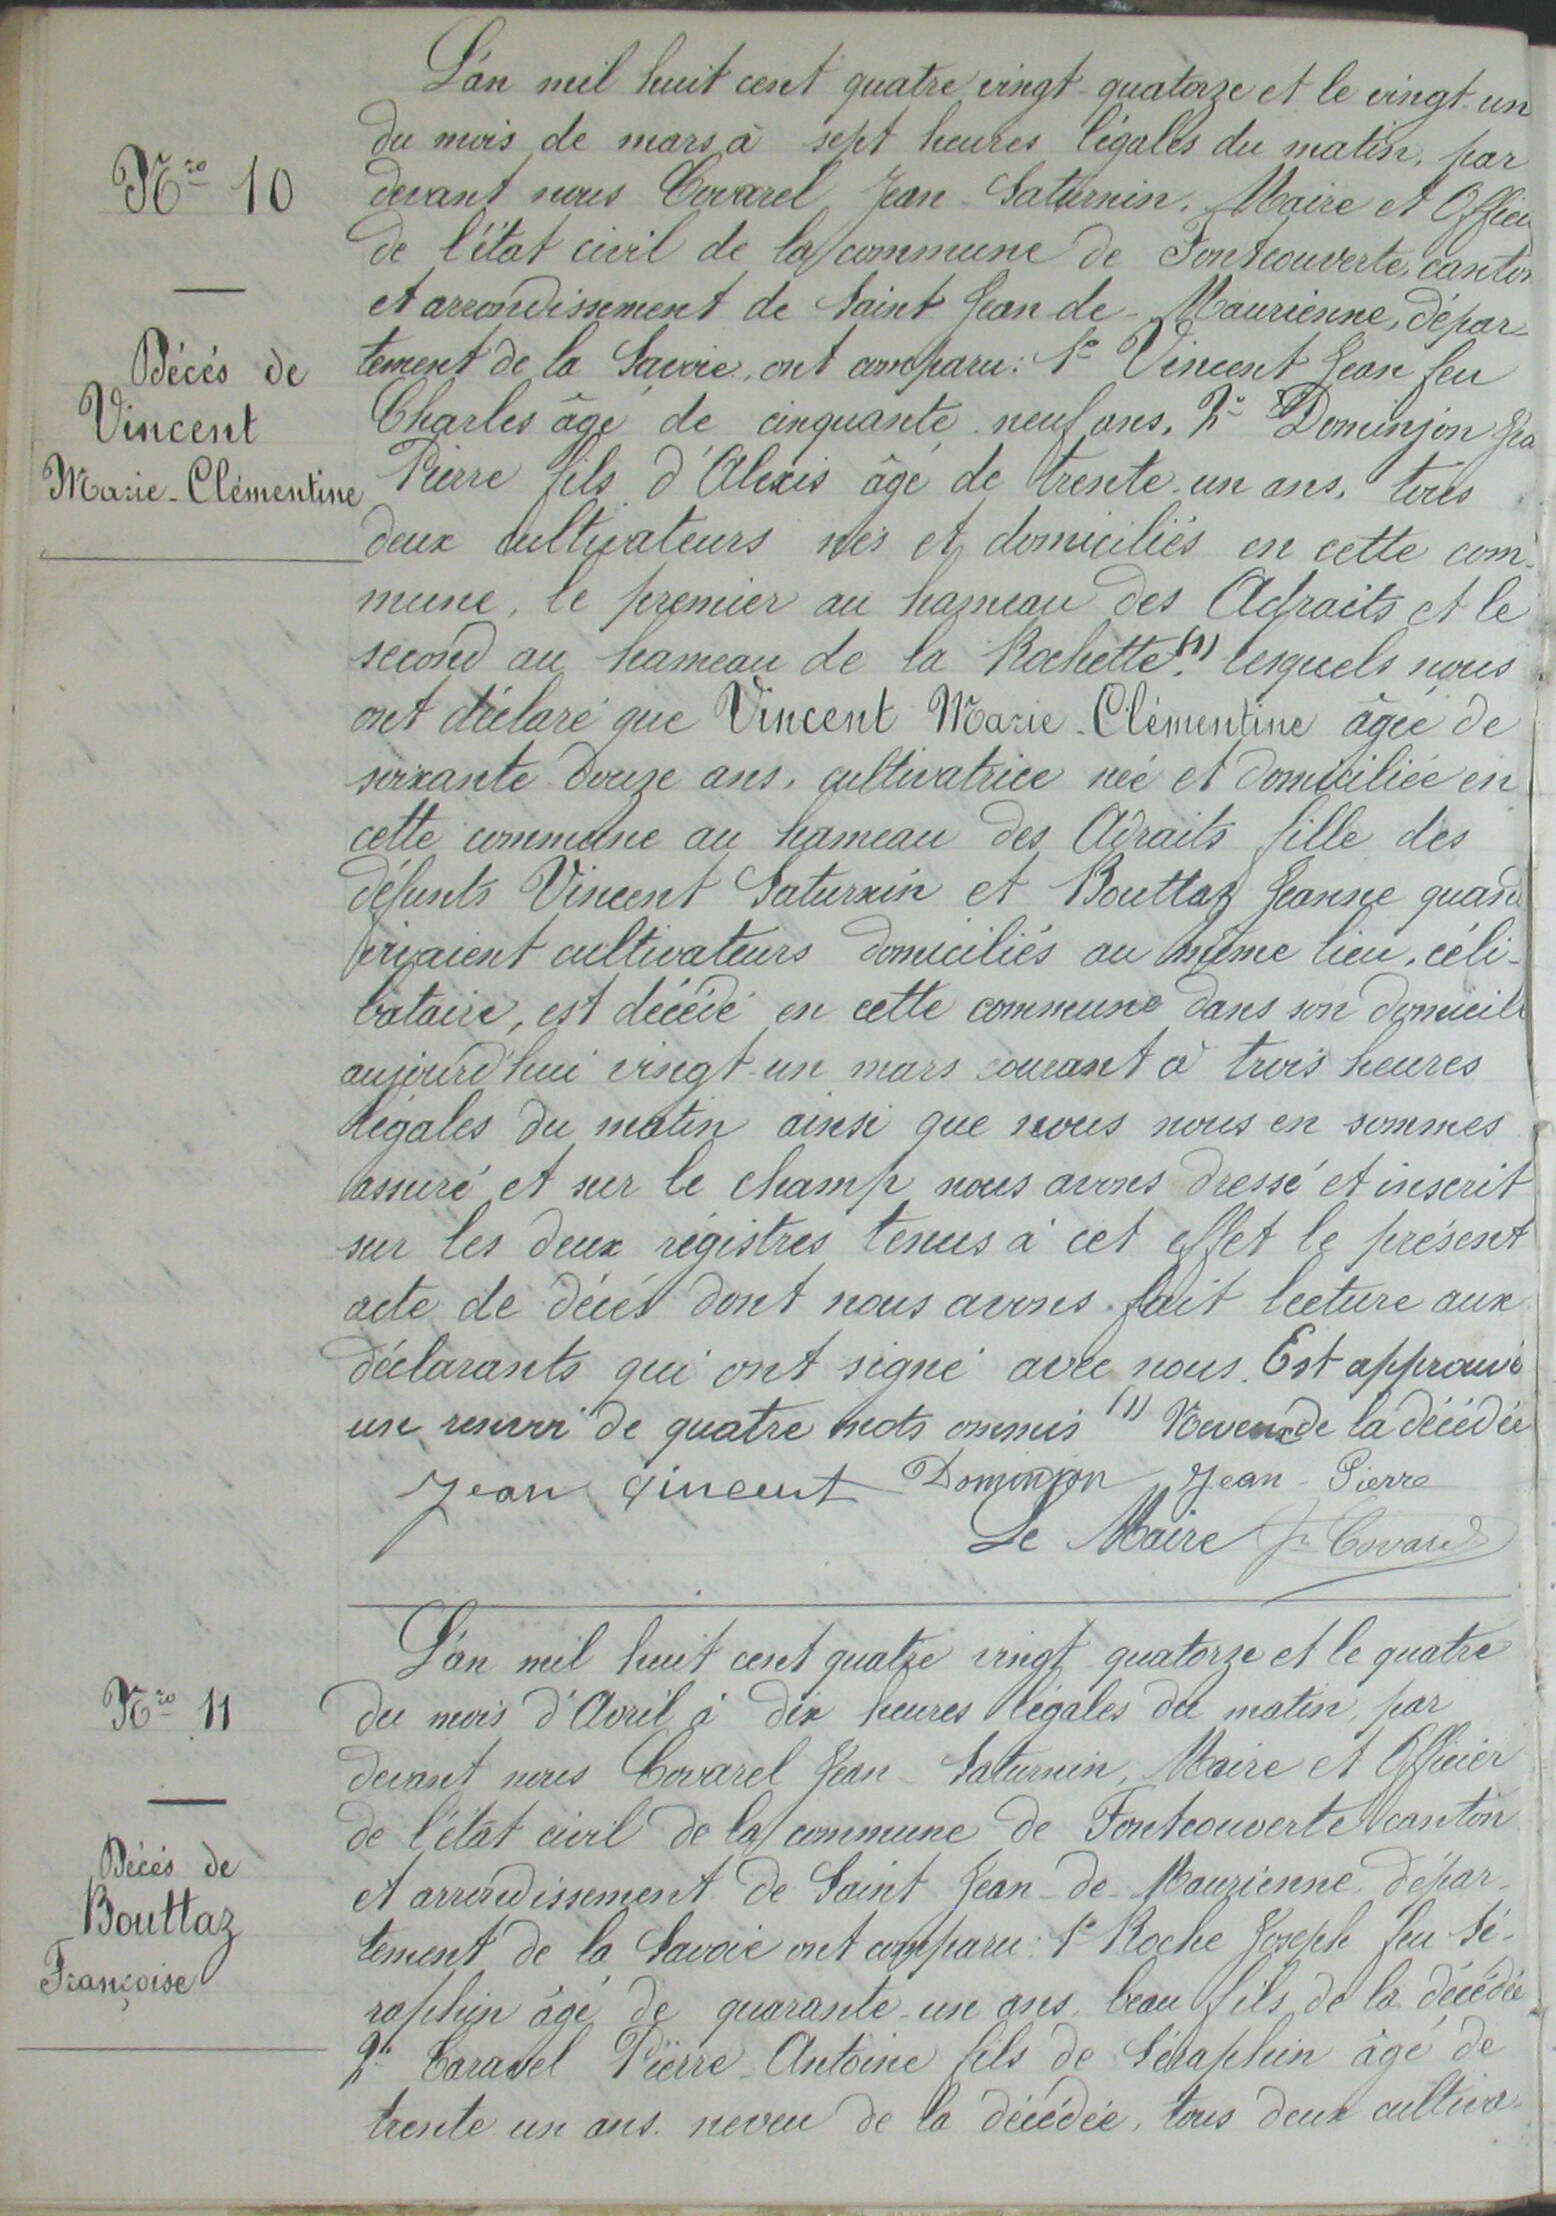 Nro 10
Décés de
Vincent
Marie-Clémentine
L'an mil huit cent quatre vingt-quatorze et le vingt-un
du mois de mars à sept heures légales du matin, par
devant nous Covarel Jean-Saturnin, Maire et Officier
de l'état civil de la commune de Fontcouverte, canton
et arrondissement de Saint Jean-de-Maurienne, dépar-
tement de la Savoie, ont comparu: 1o Vincent Jean feu
Charles âgé de cinquante-neuf ans, 2o Dominjon Jea
Pierre fils d'Alexis âgé de trente-un ans, tous
deux cultivateurs nés et domiciliés en cette com-
mune, le premier au hameau des Adraits et le
second au hameau de la Rochette (1) lesquels nous
ont déclaré que Vincent Marie-Clémentine âgée de
soixante-douze ans, cultivatrice née et domiciliée en
cette commune au hameau des Adraits fille des
défunts Vincent Saturnin et Bouttaz Jeanne quand
vivaient cultivateurs domiciliés au même lieu, céli-
bataire, est décédé en cette commune dans son domicile
aujourd'hui vingt-un mars courant à trois heures
légales du matin ainsi que nous nous en sommes
assuré et sur le champ nous avons dressé et inscrit
sur les deux régistres tenus à cet effet le présent
acte de décés dont nous avons fait lecture aux
déclarants qui ont signé avec nous. Est approuvé
un renvoi de quatre mots ommis (1) Neveux de la décédée
Jean Vincent Dominjon Jean-Pierre
Le Maire Jn Covarel
Nro 11
Décés de
Bouttaz
Françoise
L'an mil huit cent quatre vingt quatorze et le quatre
du mois d'Avril à dix heures légales du matin, par
devant nous Covarel Jean-Saturnin, Maire et Officier
de l'état civil de la commune de Fontcouverte canton
et arrondissement de Saint Jean-de-Maurienne, dépar-
tement de la Savoie ont comparu: 1o Roche Joseph feu Sé-
raphin âgé de quarante-un ans, beau fils de la décédée
2o Caravel Pierre-Antoine fils de Séraphin âgé de
trente un ans. neveu de la décédée, tous deux cultiva-